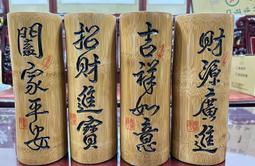 財源廣進
吉祥如意
招財進寶
闔家平安